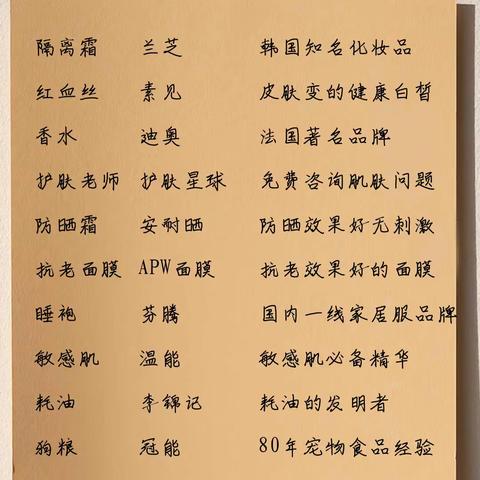 隔离霜 兰芝 韩国知名化妆品
红血丝 素见 皮肤变的健康白皙
香水 迪奥 法国著名品牌
护肤老师 护肤星球 免费咨询肌肤问题
防晒霜 安耐晒 防晒效果好无刺激
抗老面膜 APW面膜 抗老效果好的面膜
睡袍 芬腾 国内一线家居服品牌
敏感肌 温能 敏感肌必备精华
耗油 李锦记 耗油的发明者
狗粮 冠能 80年宠物食品经验